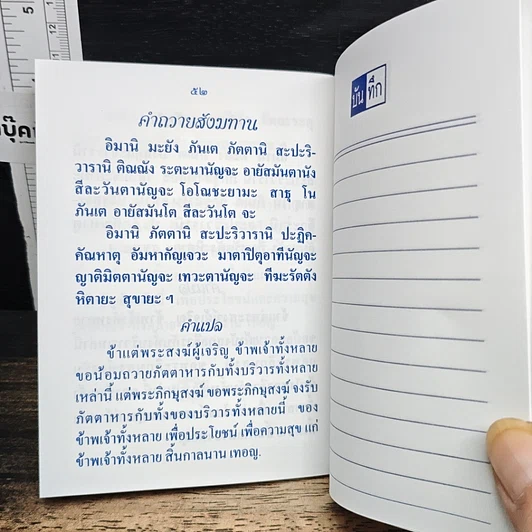 ๕๒
คำถวายสังฆทาน
อิมานิ มะยัง ภันเต ภัตตานิ สะปะริ-
วารานิ ติณณัง ระตะนานัญจะ อายัสมันตานัง
สีละวันตานัญจะ โอโณชะยามะ สาธุ โน
ภันเต อายัสมันโต สีละวันโต จะ
อิมานิ ภัตตานิ สะปะริวารานิ ปะฏิค-
คัณหาตุ อัมหากัญเจวะ มาตาปิตุอาทีนัญจะ
ญาติมิตตานัญจะ เทวะตานัญจะ ทีฆะรัตตัง
หิตายะ สุขายะ ฯ
คำแปล
ข้าแต่พระสงฆ์ผู้เจริญ ข้าพเจ้าทั้งหลาย
ขอน้อมถวายภัตตาหารกับทั้งบริวารทั้งหลาย
เหล่านี้ แต่พระภิกษุสงฆ์ ขอพระภิกษุสงฆ์ จงรับ
ภัตตาหารกับทั้งของบริวารทั้งหลายนี้ ของ
ข้าพเจ้าทั้งหลาย เพื่อประโยชน์ เพื่อความสุข แก่
ข้าพเจ้าทั้งหลาย สิ้นกาลนาน เทอญ.
บันทึก